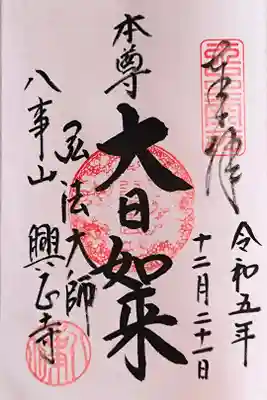 奉拝
令和五年
十二月二十一日
本尊
大日如来
弘法大師
八事山 興正寺